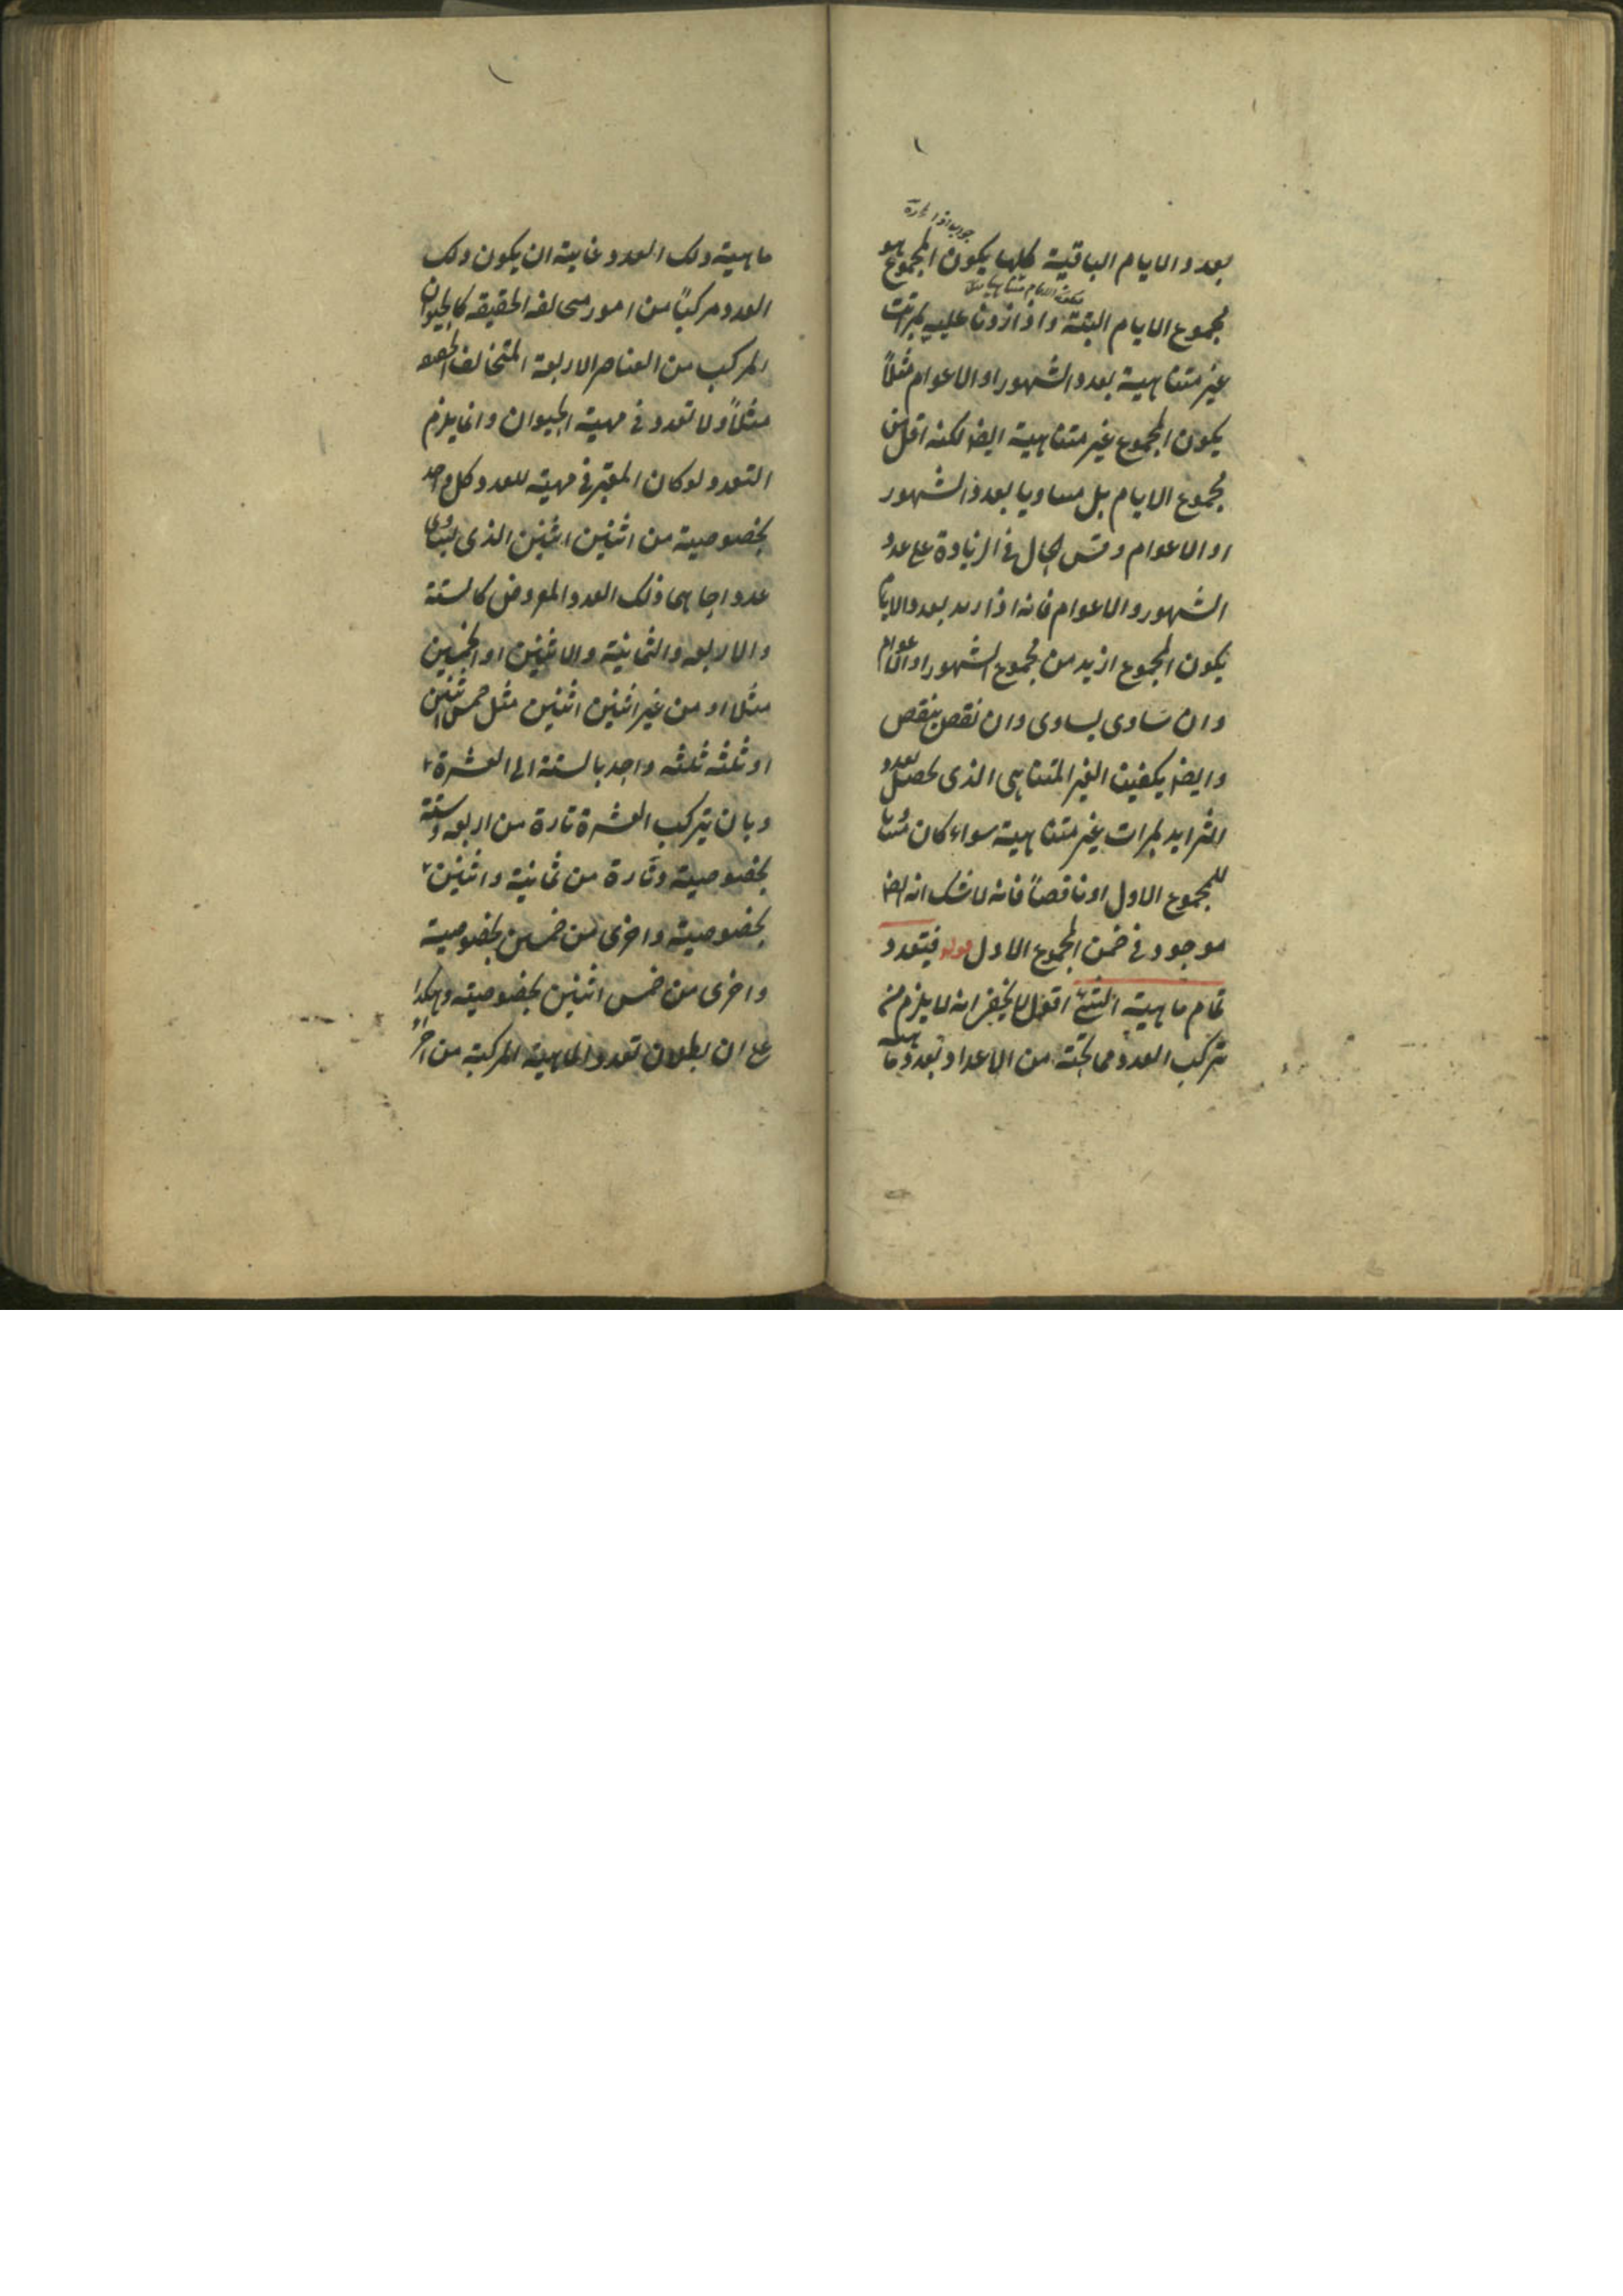 بعدد الايام الباقية كلها يكون المجموع هو
مجموع الايام البتة واذا زدنا عليه بمرات
غير متناهية بعدد الشهور او الاعوام مثلاً
يكون المجموع غير متناهية ايضا لكنه اقل من
مجموع الايام بل مساويا بعدد الشهور
او الاعوام وقس الحال في الزيادة على عدد
الشهور والاعوام فانه اذا زيد بعدد الايام
يكون المجموع ازيد من مجموع الشهور او الاعوام
وان ساوى يساوى وان نقص ينقص
وايضا يكفينا الغير المتناهى الذى يحصل بعدد
التزايد بمرات غير متناهية سواء كان
للمجموع الاول او ناقصاً فانه لا شك انه ايضا
موجود في ضمن المجموع الاول قوله فيتعدد
تمام ماهية الشئ اقول لا يخفى انه لا يلزم من
تركب العدد مما تحته من الاعداد تعدد ماهية
ماهية ذلك العدد وغايته ان يكون ذلك
العدد مركباً من امور متخالفة الحقيقة كالحيوان
المركب من العناصر الاربعة المتخالف الحقيقة
مثلاً ولا تعدد في مهية الحيوان وانما يلزم
التعدد لو كان المعتبر في مهية العدد كل واحد
بخصوصية من اثنين اثنين الذى يساوى
عدد ذلك العدد المفروض كالستة
والاربعة والثمانية والاثنين او الخمسين
مثلا او من غير اثنين اثنين مثل خمس اثنين
او ثلثه ثلثه واحد بالستة الى العشرة
وبان يتركب العشرة تارة من اربعة وستة
بخصوصية وتارة من ثمانية واثنين
بخصوصية واخرى من خمسين بخصوصية
واخرى من خمس اثنين بخصوصيته وهكذا
على ان بطلان تعدد الماهية المركبة من اجزاء